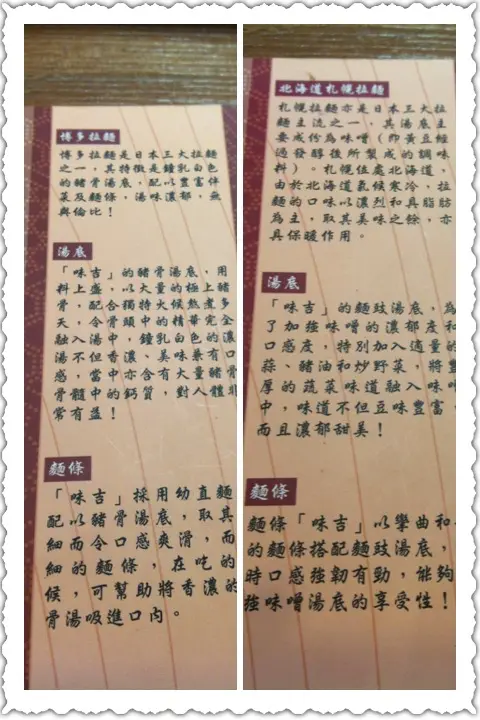 博多拉麵
博多拉麵是日本三大拉麵
之一，其特徵是鐘乳白色
的豬骨湯底，配以豐富伴
菜及麵條，湯味濃郁，無
與倫比！
湯底
「味吉」的豬骨湯底，用
料上盛，以大量的極上豬
骨，配合獨特火候熬煮多
天，令骨頭中的精華完全
融入湯中，鐘乳白色的濃
湯不但香濃、美味兼有口
感，當中亦含有大量豬
骨髓中的鈣質，對人體非
常有益！
麵條
「味吉」採用幼直麵
配以豬骨湯底，取其
細而令口感爽滑，而
細的麵條，在吃的
候，可幫助將香濃的
骨湯吸進口內。
北海道札幌拉麵
札幌拉麵亦是日本三大拉
麵主流之一，其湯底主
要成份為味噌（即黃豆經
過發醇後所製成的調味
料）。札幌位處北海道，
由於北海道氣候寒冷，拉
麵的口味以濃烈和具脂肪
為主，取其美味之餘，亦
具保暖作用。
湯底
「味吉」的麵豉湯底，為
了加強味噌的濃郁度和
口感度，特別加入適量的
蒜、豬油和炒野菜，將豐
厚的蔬菜味道融入味噌
中，味道不但豆味豐富，
而且濃郁甜美！
麵條
麵條「味吉」以攣曲和
的麵條搭配麵豉湯底，
時口感強韌有勁，能夠
強味噌湯底的享受性！